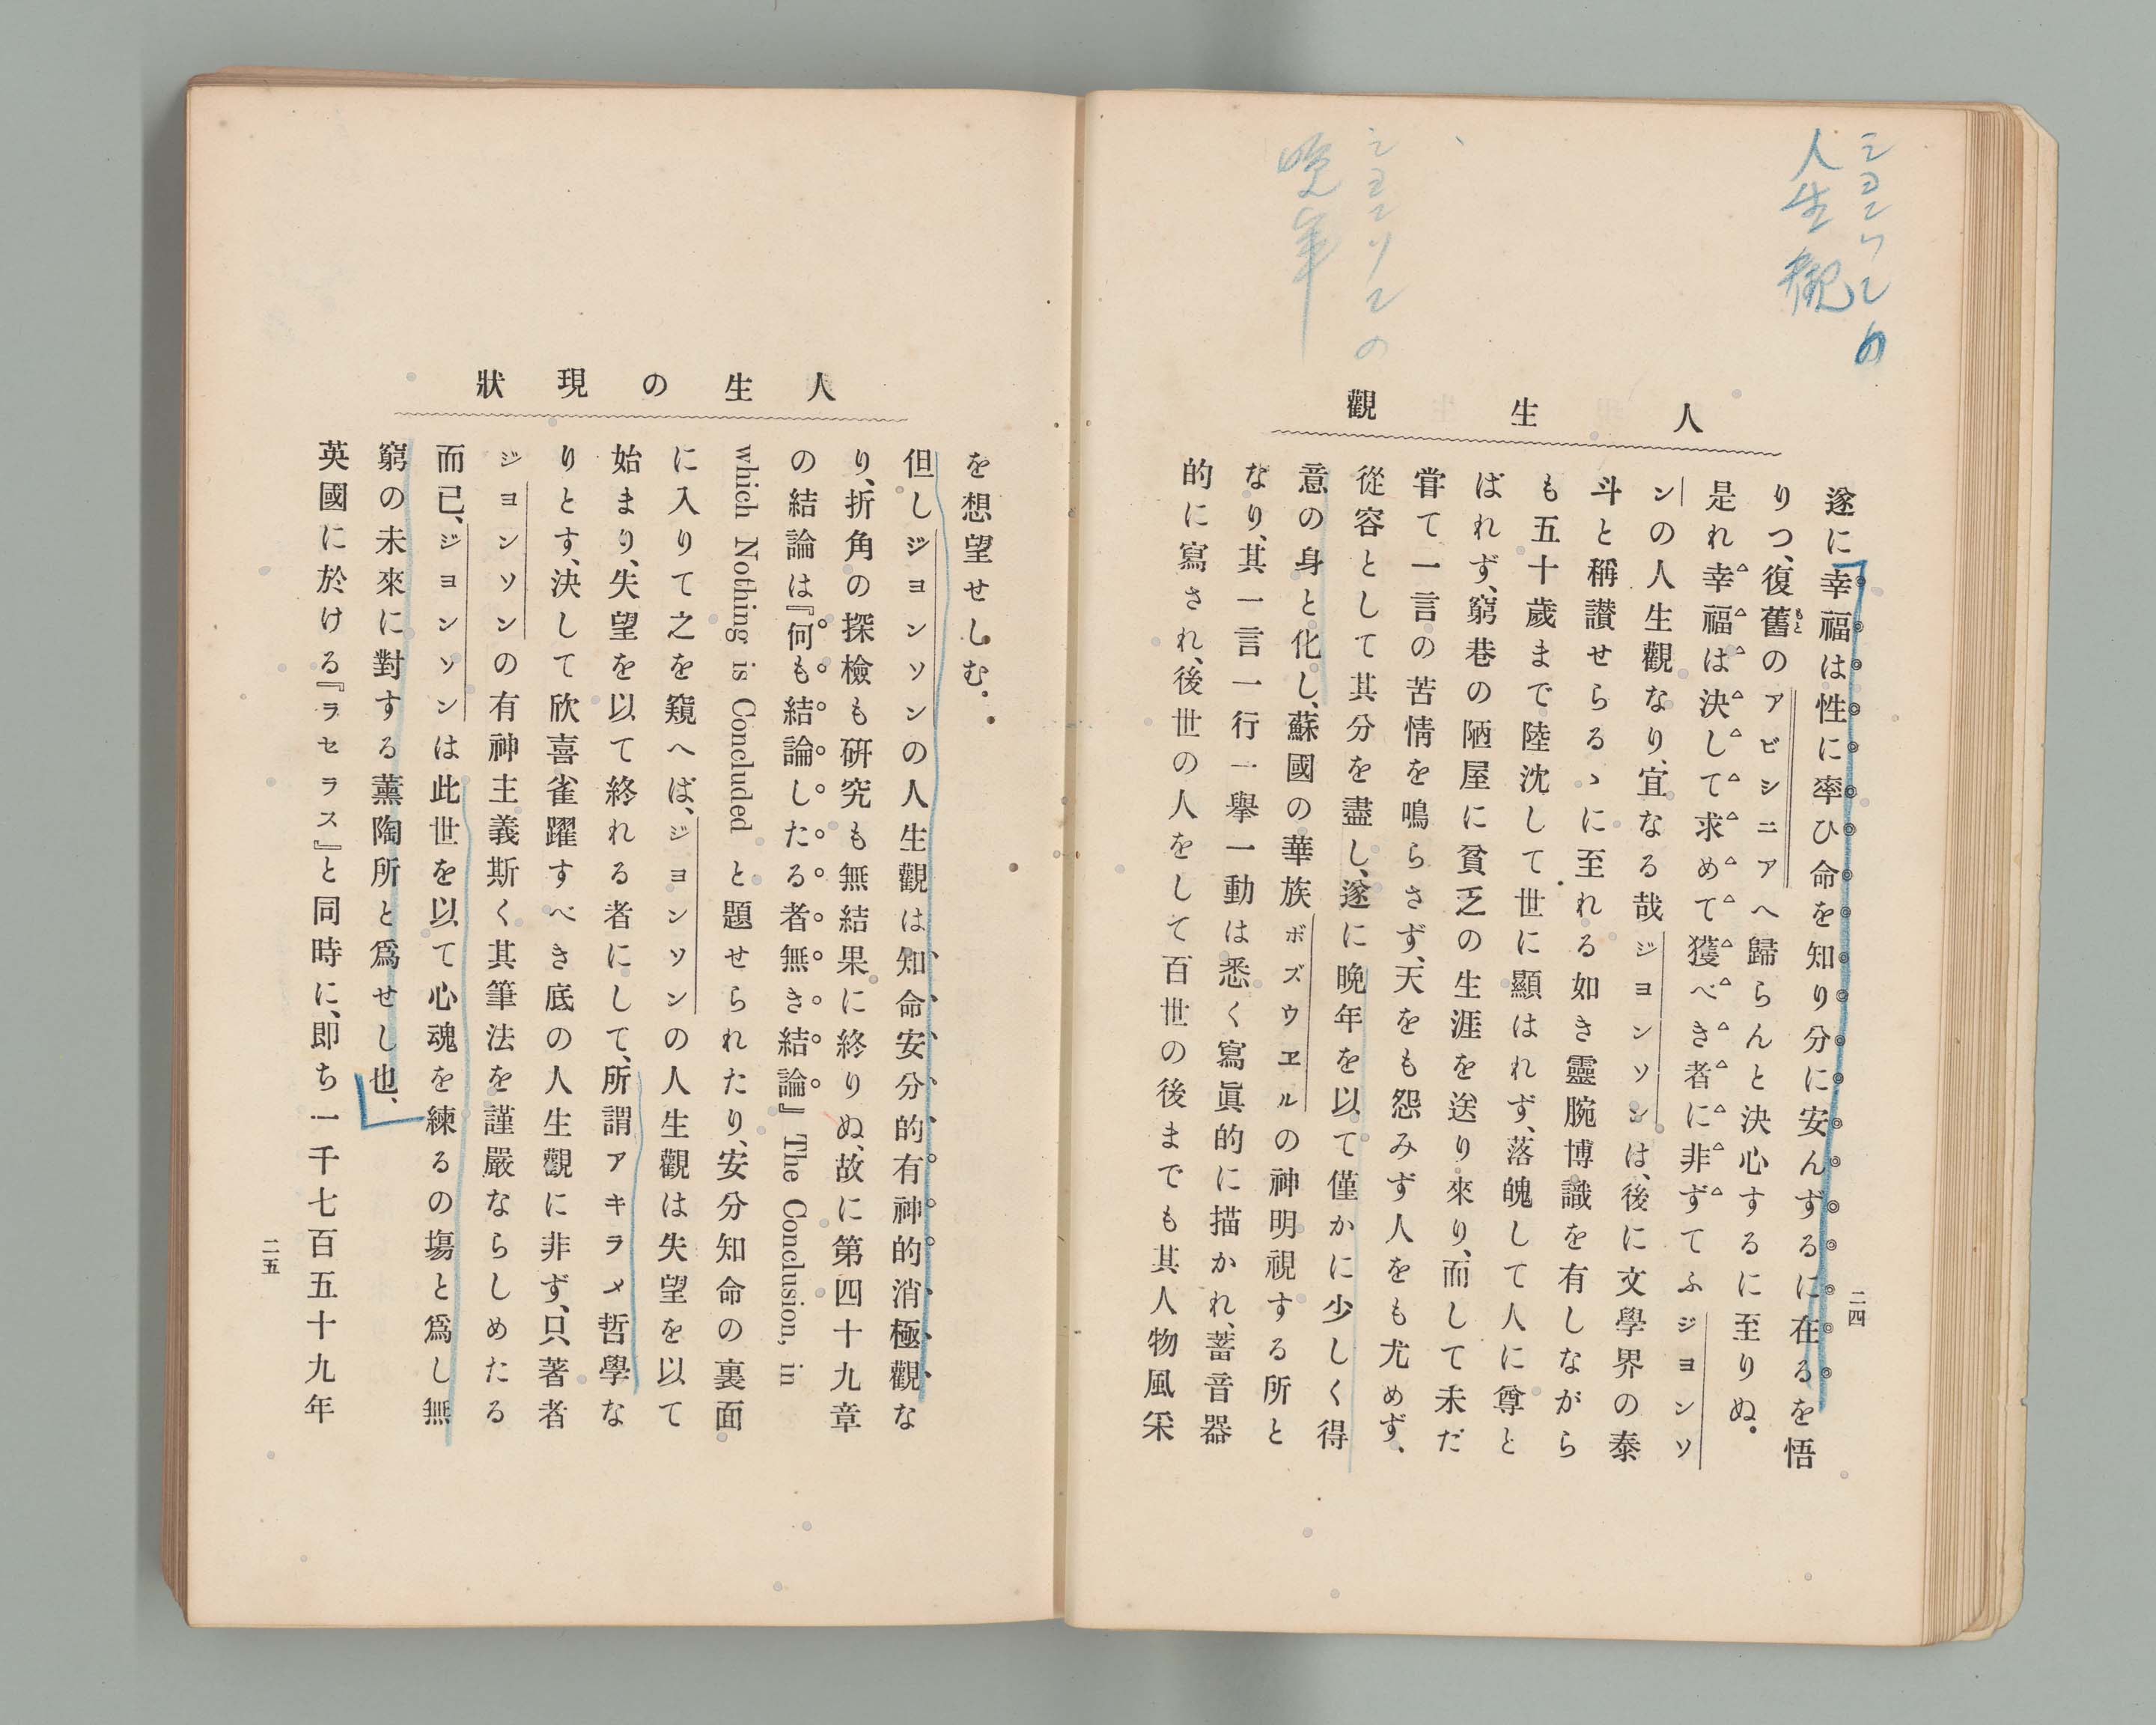 ジヨンソンの
人生觀
ジヨンソンの
晩年
人生觀
遂に幸福は性に率ひ命を知り分に安んずるに在るを悟
りつ、復舊のアビシニアへ歸らんと決心するに至りぬ。
もと
是れ幸福は決して求めて獲べき者に非ずてふジヨンソ
ンの人生觀なり、宜なる哉ジヨンソンは、後に文學界の泰
斗と稱讃せらるゝに至れる如き靈腕博識を有しながら
も五十歲まで陸沈して世に顯はれず、落魄して人に尊と
ばれず、窮巷の陋屋に貧乏の生涯を送り來り、而して未だ
甞て一言の苦情を鳴らさず、天をも怨みず人をも尤めず、
從容として其分を盡し、遂に晩年を以て僅かに少しく得
意の身と化し、蘇國の華族ボズウヱルの神明視する所と
なり、其一言一行一擧一動は悉く寫眞的に描かれ、蓄音器
的に寫され、後世の人をして百世の後までも其人物風采
二四
人生の現狀
を想望せしむ。
但しジヨンソンの人生觀は知命安分的有神的消極觀な
り、折角の探檢も硏究も無結果に終りぬ、故に第四十九章
の結論は『何も結論したる者無き結論』The Conclusion, in
which Nothing is Concluded と題せられたり、安分知命の裏面
に入りて之を窺へば、ジヨンソンの人生觀は失望を以て
始まり、失望を以て終れる者にして、所謂アキラメ哲學な
りとす、決して欣喜雀躍すべき底の人生觀に非ず、只著者
ジヨンソンの有神主義斯く其筆法を謹嚴ならしめたる
而已、ジヨンソンは此世を以て心魂を練るの塲と爲し無
窮の未來に對する薰陶所と爲せし也、
英國に於ける『ラセラス』と同時に、即ち一千七百五十九年
二五